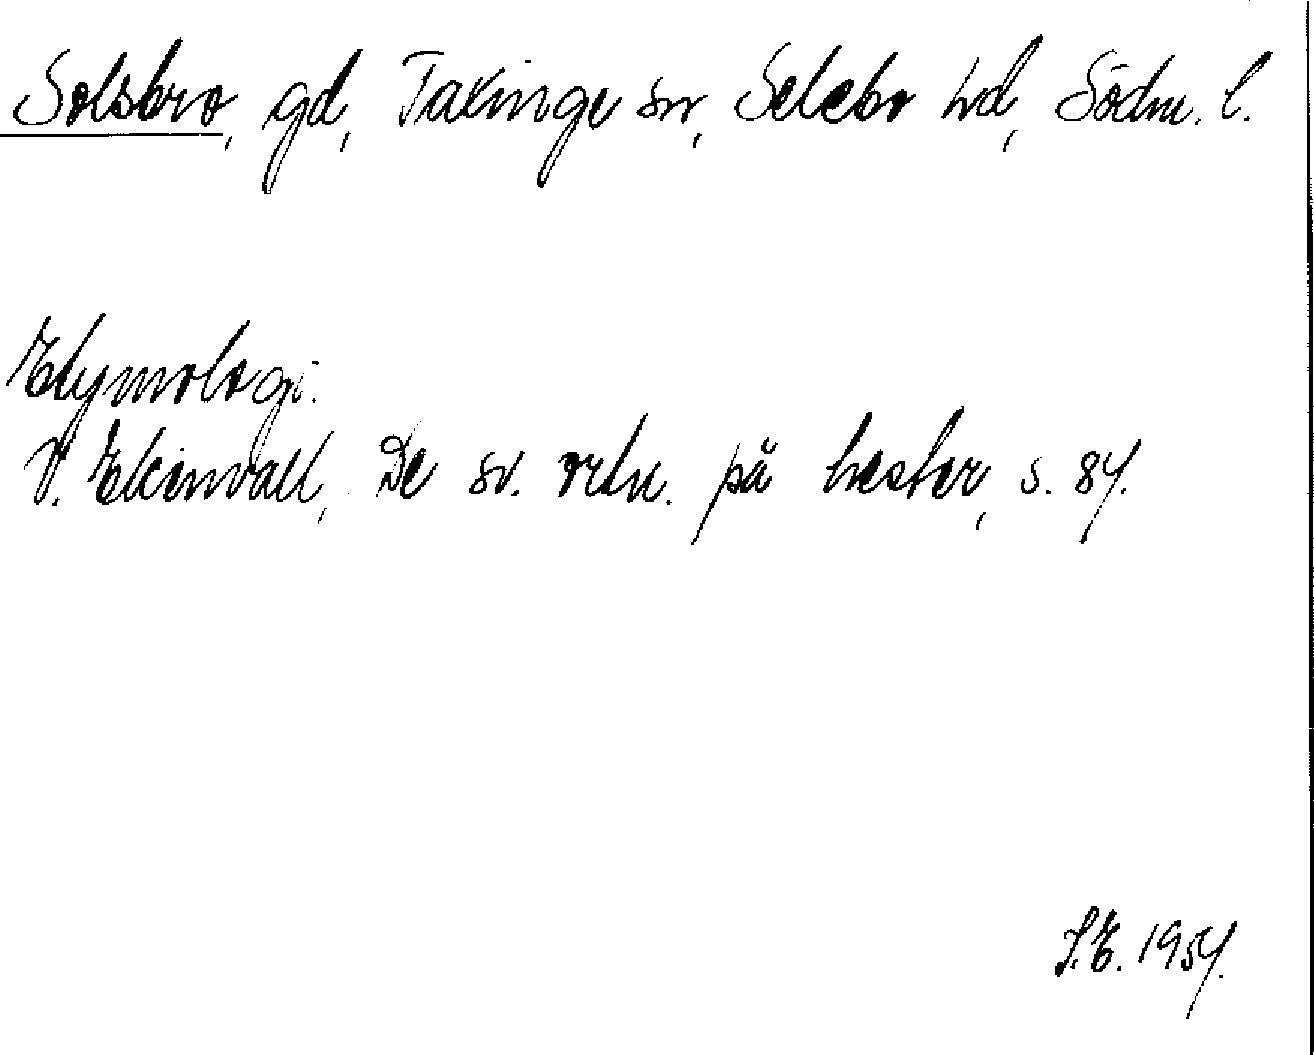 Solsbro, gd, Taxinge sn, Selebo hd, Södm. l.
Etymologi.
V. Ekenvall, De sv. ortn. på hester, s. 84.
S.E. 1954.